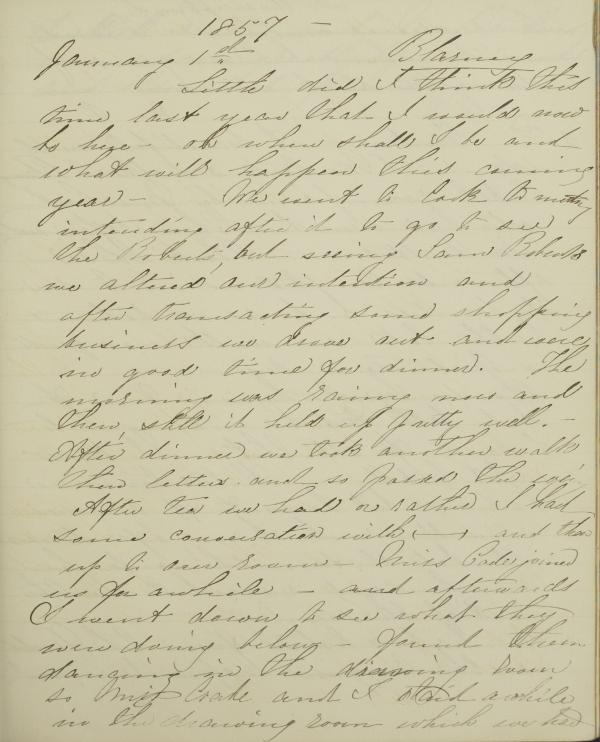 1857 –
January 1st Blarney
Little did I think this
time last year that I would now
be here – oh when shall I be and
what will happen this coming
year – We went to Cork to meeting
intending after it to go to see
the Roberts', but seeing Sam Roberts
we altered our intention and
after transacting some shopping
business we drove out and were
in good time for dinner. The
morning was rainy now and
then, still it held up pretty well. –
After dinner we took another walk
then letters and so passed the
After tea we had or rather I had
some conversation with (—) and then
up to our room – Miss joined
us for awhile – and afterwards
I went down to see what they
were doing below – found them
dancing in the drawing room
so Miss and I staid awhile
in the drawing room which we had